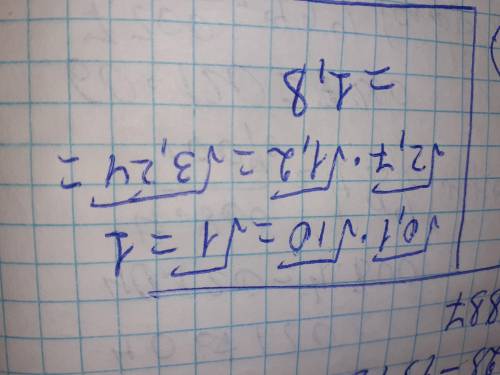 √0,1 · √10 = √1 = 1
√2,7 · √1,2 = √3,24 =
= 1,8
887